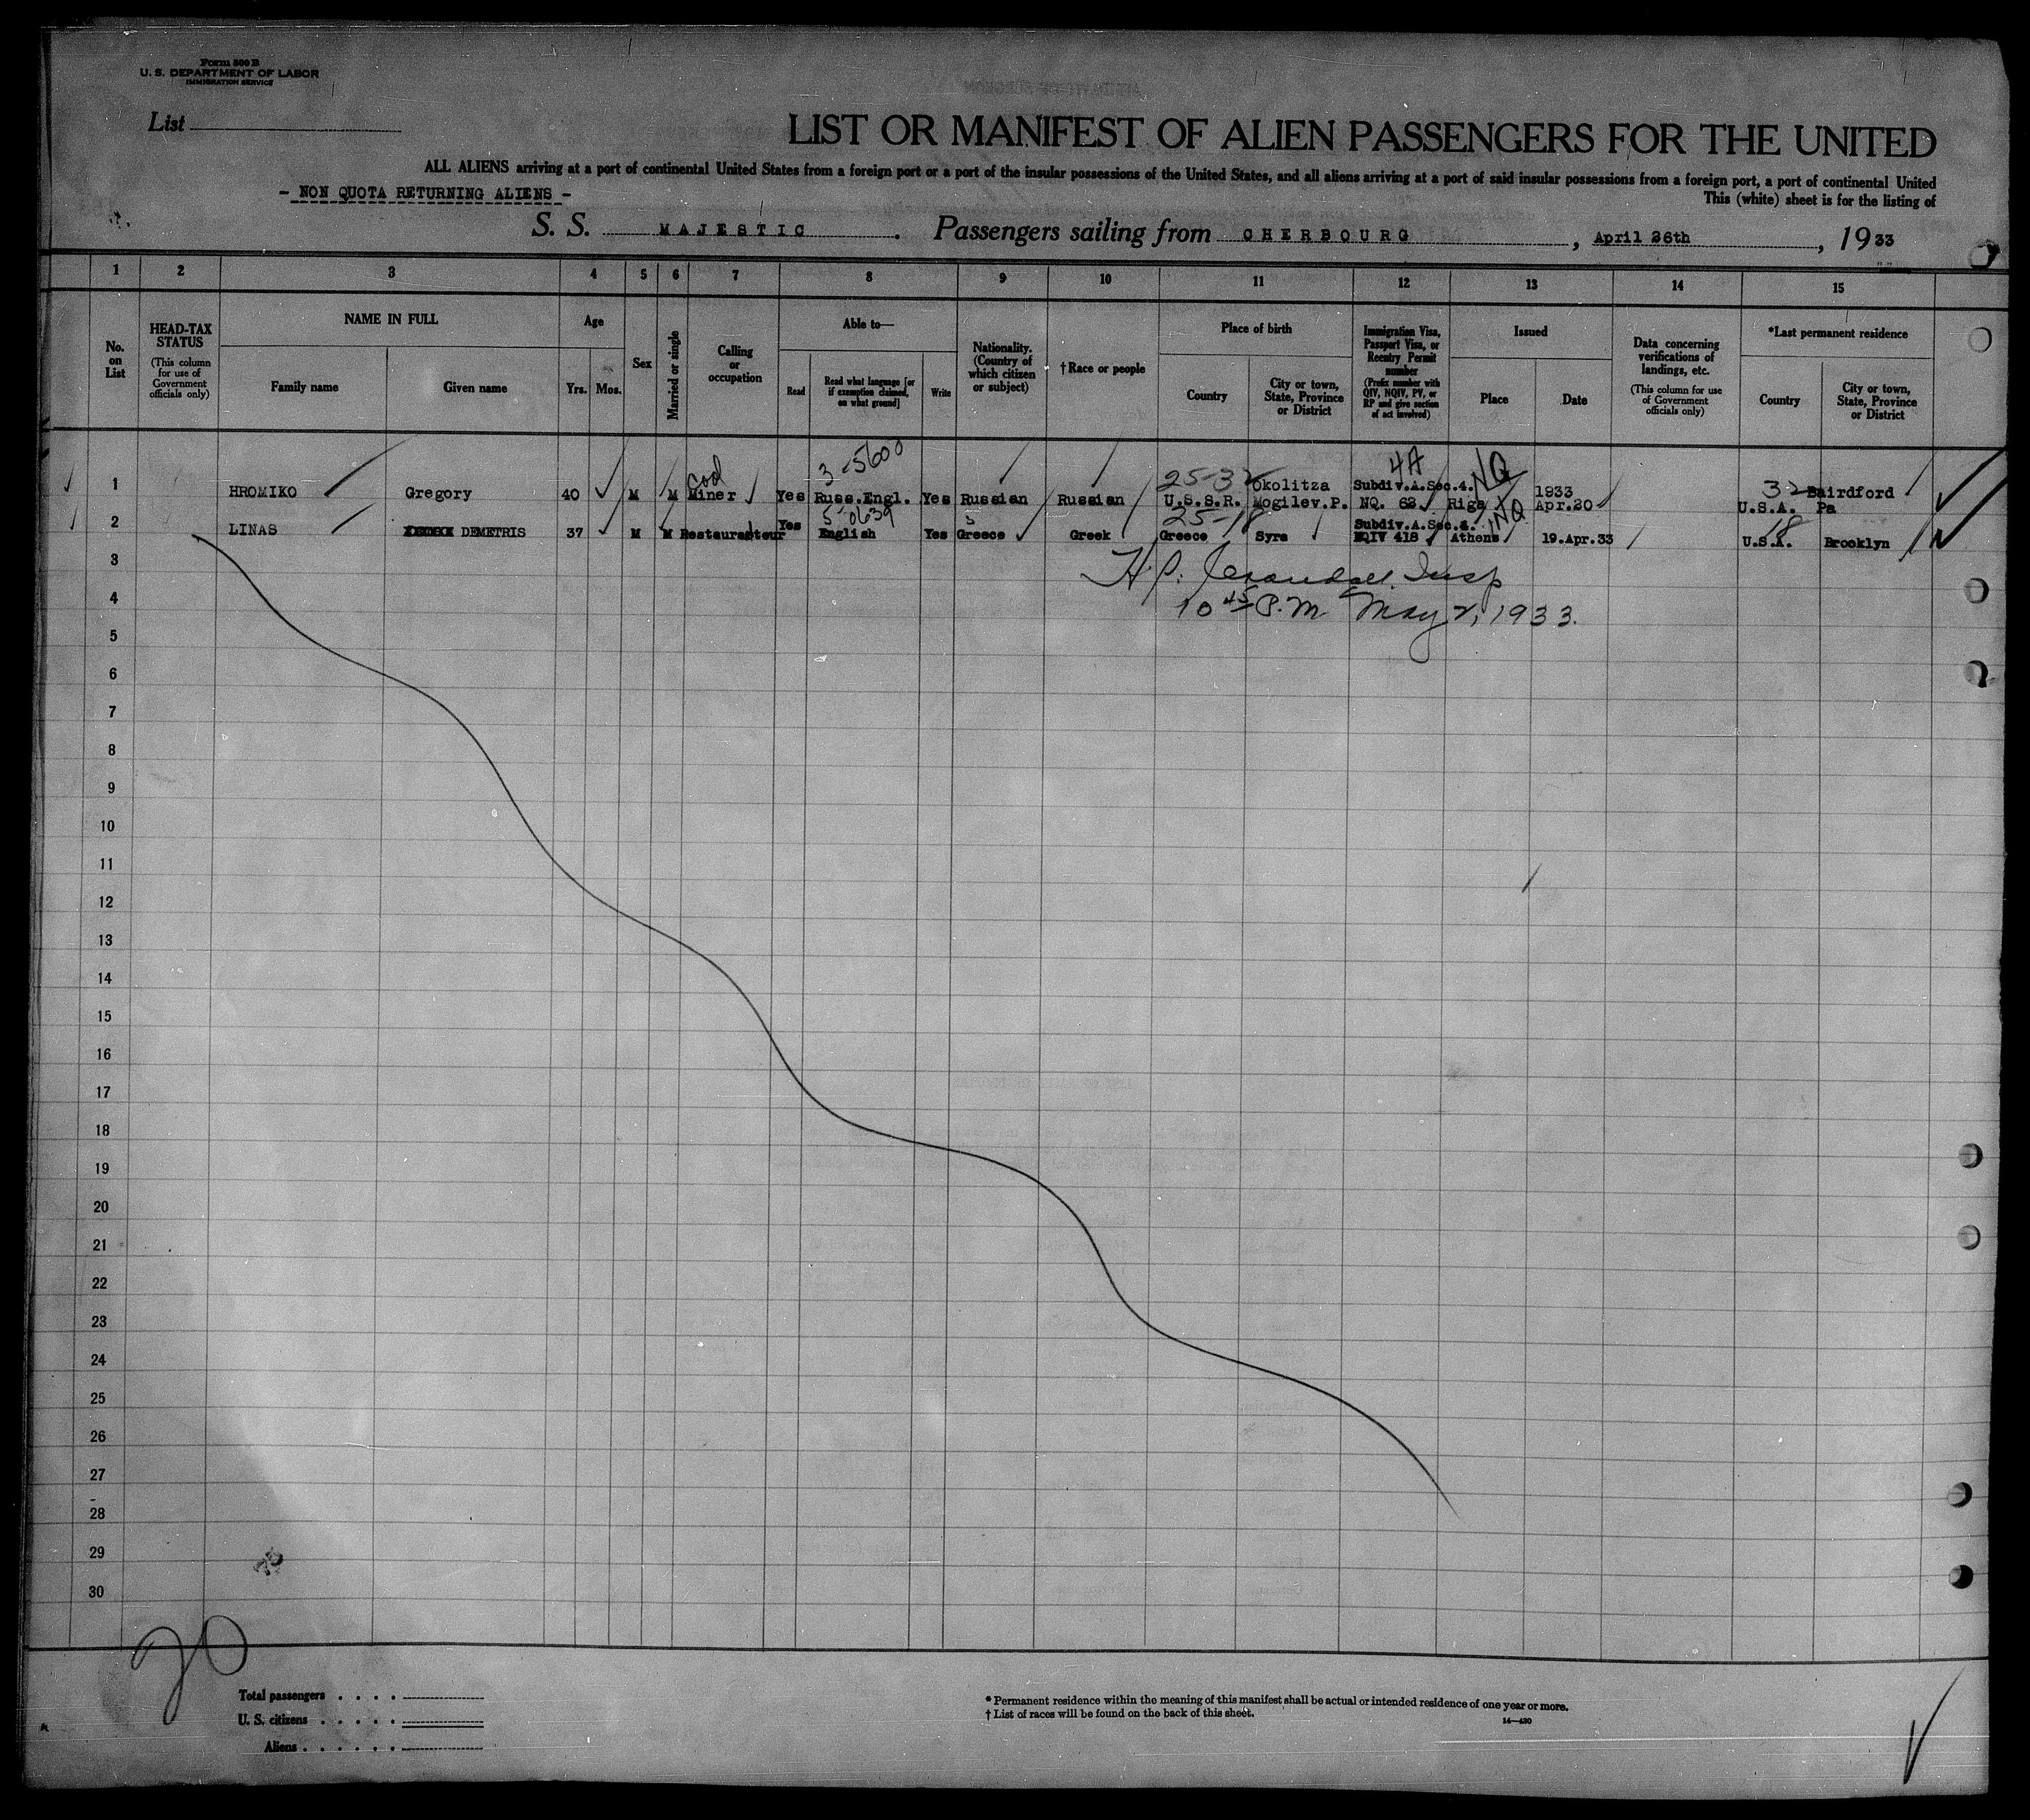 Form 500 B
U. S. DEPARTMENT OF LABOR
IMMIGRATION SERVICE
List
LIST OR MANIFEST OF ALIEN PASSENGERS FOR THE UNITED
ALL ALIENS arriving at a port of continental United States from a foreign port or a port of the insular possessions of the United States, and all aliens arriving at a port of said insular possessions from a foreign port, a port of continental United
- NON QUOTA RETURNING ALIENS -
This (white) sheet is for the listing of
S. S. MAJESTIC. Passengers sailing from CHERBOURG, April 26th, 1933
1 2 3 4 5 6 7 8 9 10 11 12 13 14 15
No. on List
HEAD-TAX STATUS (This column for use of Government officials only)
NAME IN FULL
Family name
Given name
Age
Yrs. Mos.
Sex
Married or single
Calling or occupation
Able to—
Read
Read what language [or if exemption claimed, on what ground]
Write
Nationality. (Country of which citizen or subject)
†Race or people
Place of birth
Country
City or town, State, Province or District
Immigration Visa, Passport Visa, or Reentry Permit number (Prefix number with QIV, NQIV, PV, or RP and give section of act involved)
Issued
Place
Date
Data concerning verifications of landings, etc. (This column for use of Government officials only)
*Last permanent residence
Country
City or town, State, Province or District
coal 3-5600 25-32 4A NQ 32
1 HROMIKO Gregory 40 M M Miner Yes Russ.Engl. Yes Russian Russian U.S.S.R. Okolitza Mogilev.P. Subdiv.A.Sec.4. NQ. 62 Riga 1933 Apr.20 U.S.A. Bairdford Pa
5-0639 25-18 NQ 18
2 LINAS DEMETRIS 37 M M Restaurateur Yes English Yes Greece Greek Greece Syra Subdiv.A.Sec.4. NQIV 418 Athens 19.Apr.33 U.S.A. Brooklyn
3
H. P. Crandall Insp
4
10 45 P.M. May 2, 1933.
5
6
7
8
9
10
11
12
13
14
15
16
17
18
19
20
21
22
23
24
25
26
27
28
29
30
20
Total passengers . . . .
U. S. citizens . . . . .
Aliens . . . . . .
* Permanent residence within the meaning of this manifest shall be actual or intended residence of one year or more.
† List of races will be found on the back of this sheet.
14—430